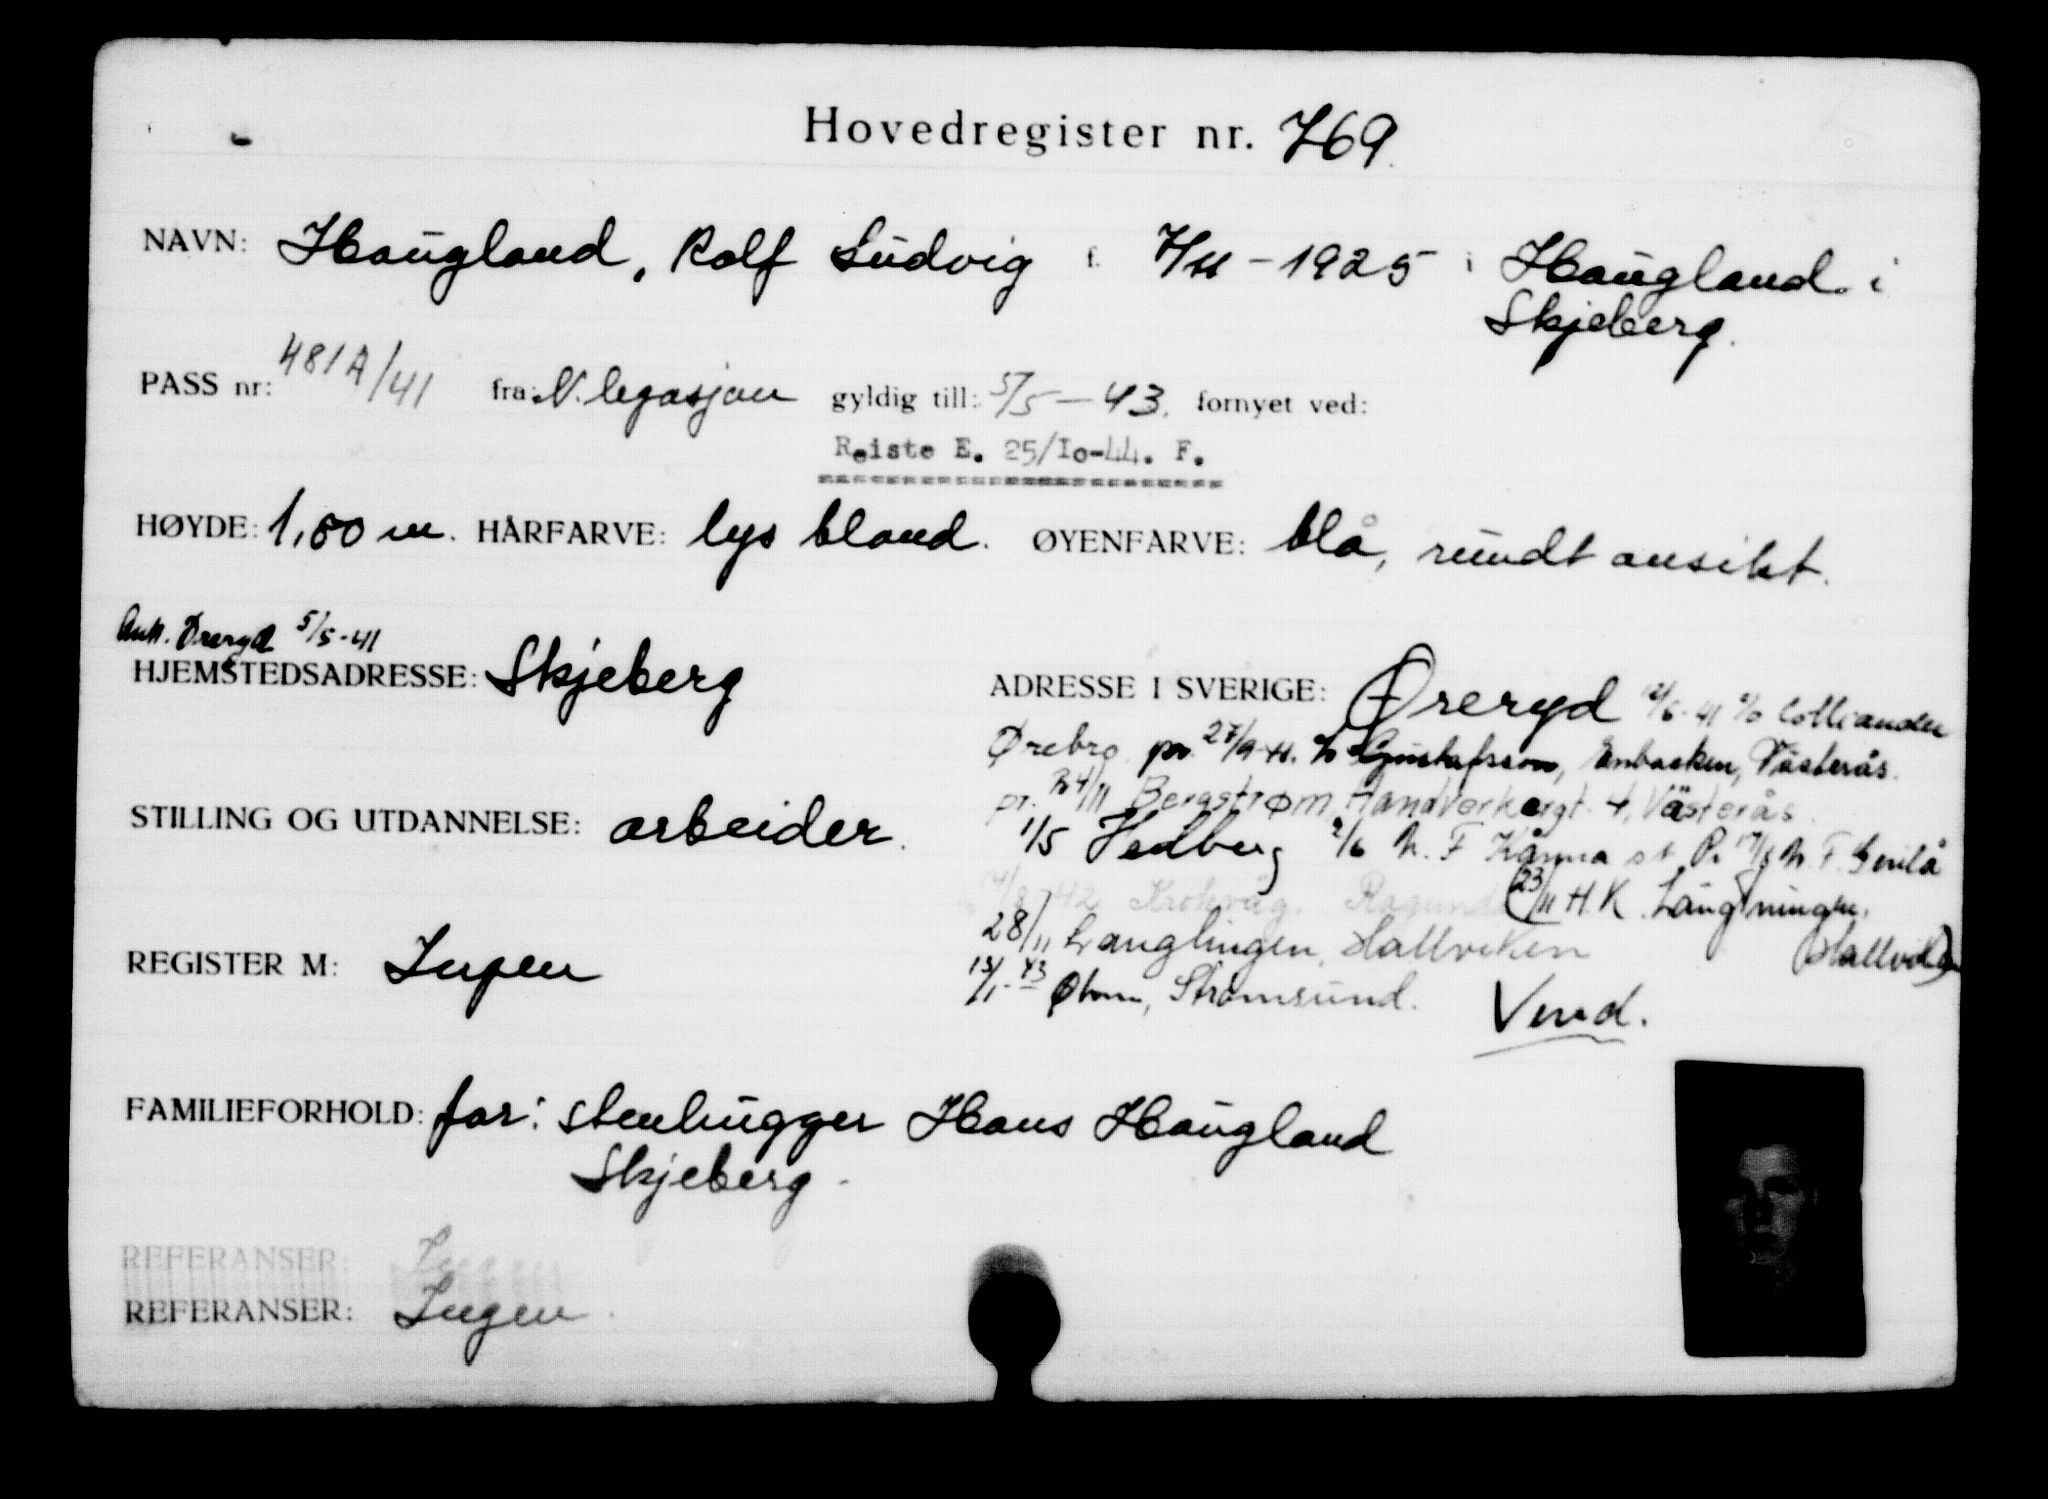 Hovedregister nr. 769
NAVN: Haugland, Rolf Ludvig f. 7/11 - 1925 i Haugland i
Skjeberg.
PASS nr: 481A/41 fra: N. legasjon gyldig till: 5/5 - 43. fornyet ved:
Reiste E. 25/Io-44. F.
HØYDE: 1,80 m. HÅRFARVE: lys blond. ØYENFARVE: blå, rundt ansikt.
Ank. Øreryd 5/5-41
HJEMSTEDSADRESSE: Skjeberg
ADRESSE I SVERIGE: Øreryd 12/6-41 c/o Colliander
Ørebro pr. 27/9-41. Gustafsson, Enbacken, Västerås.
pr. 24/11 Bergstrøm, Handverkargt. 4, Västerås.
1/5 Hedberg 2/6 N. F. Kånna st. P. N. F.
42 Krokvåg. Ragunda (23/11 H. K. Långningen,
28/11 Langlingen, Hallviken Hallviken)
13/1-43 Strømsund.
Vend.
STILLING OG UTDANNELSE: arbeider.
REGISTER M: Ingen
FAMILIEFORHOLD: far: stenhugger Hans Haugland
Skjeberg.
REFERANSER: Ingen
REFERANSER: Ingen.